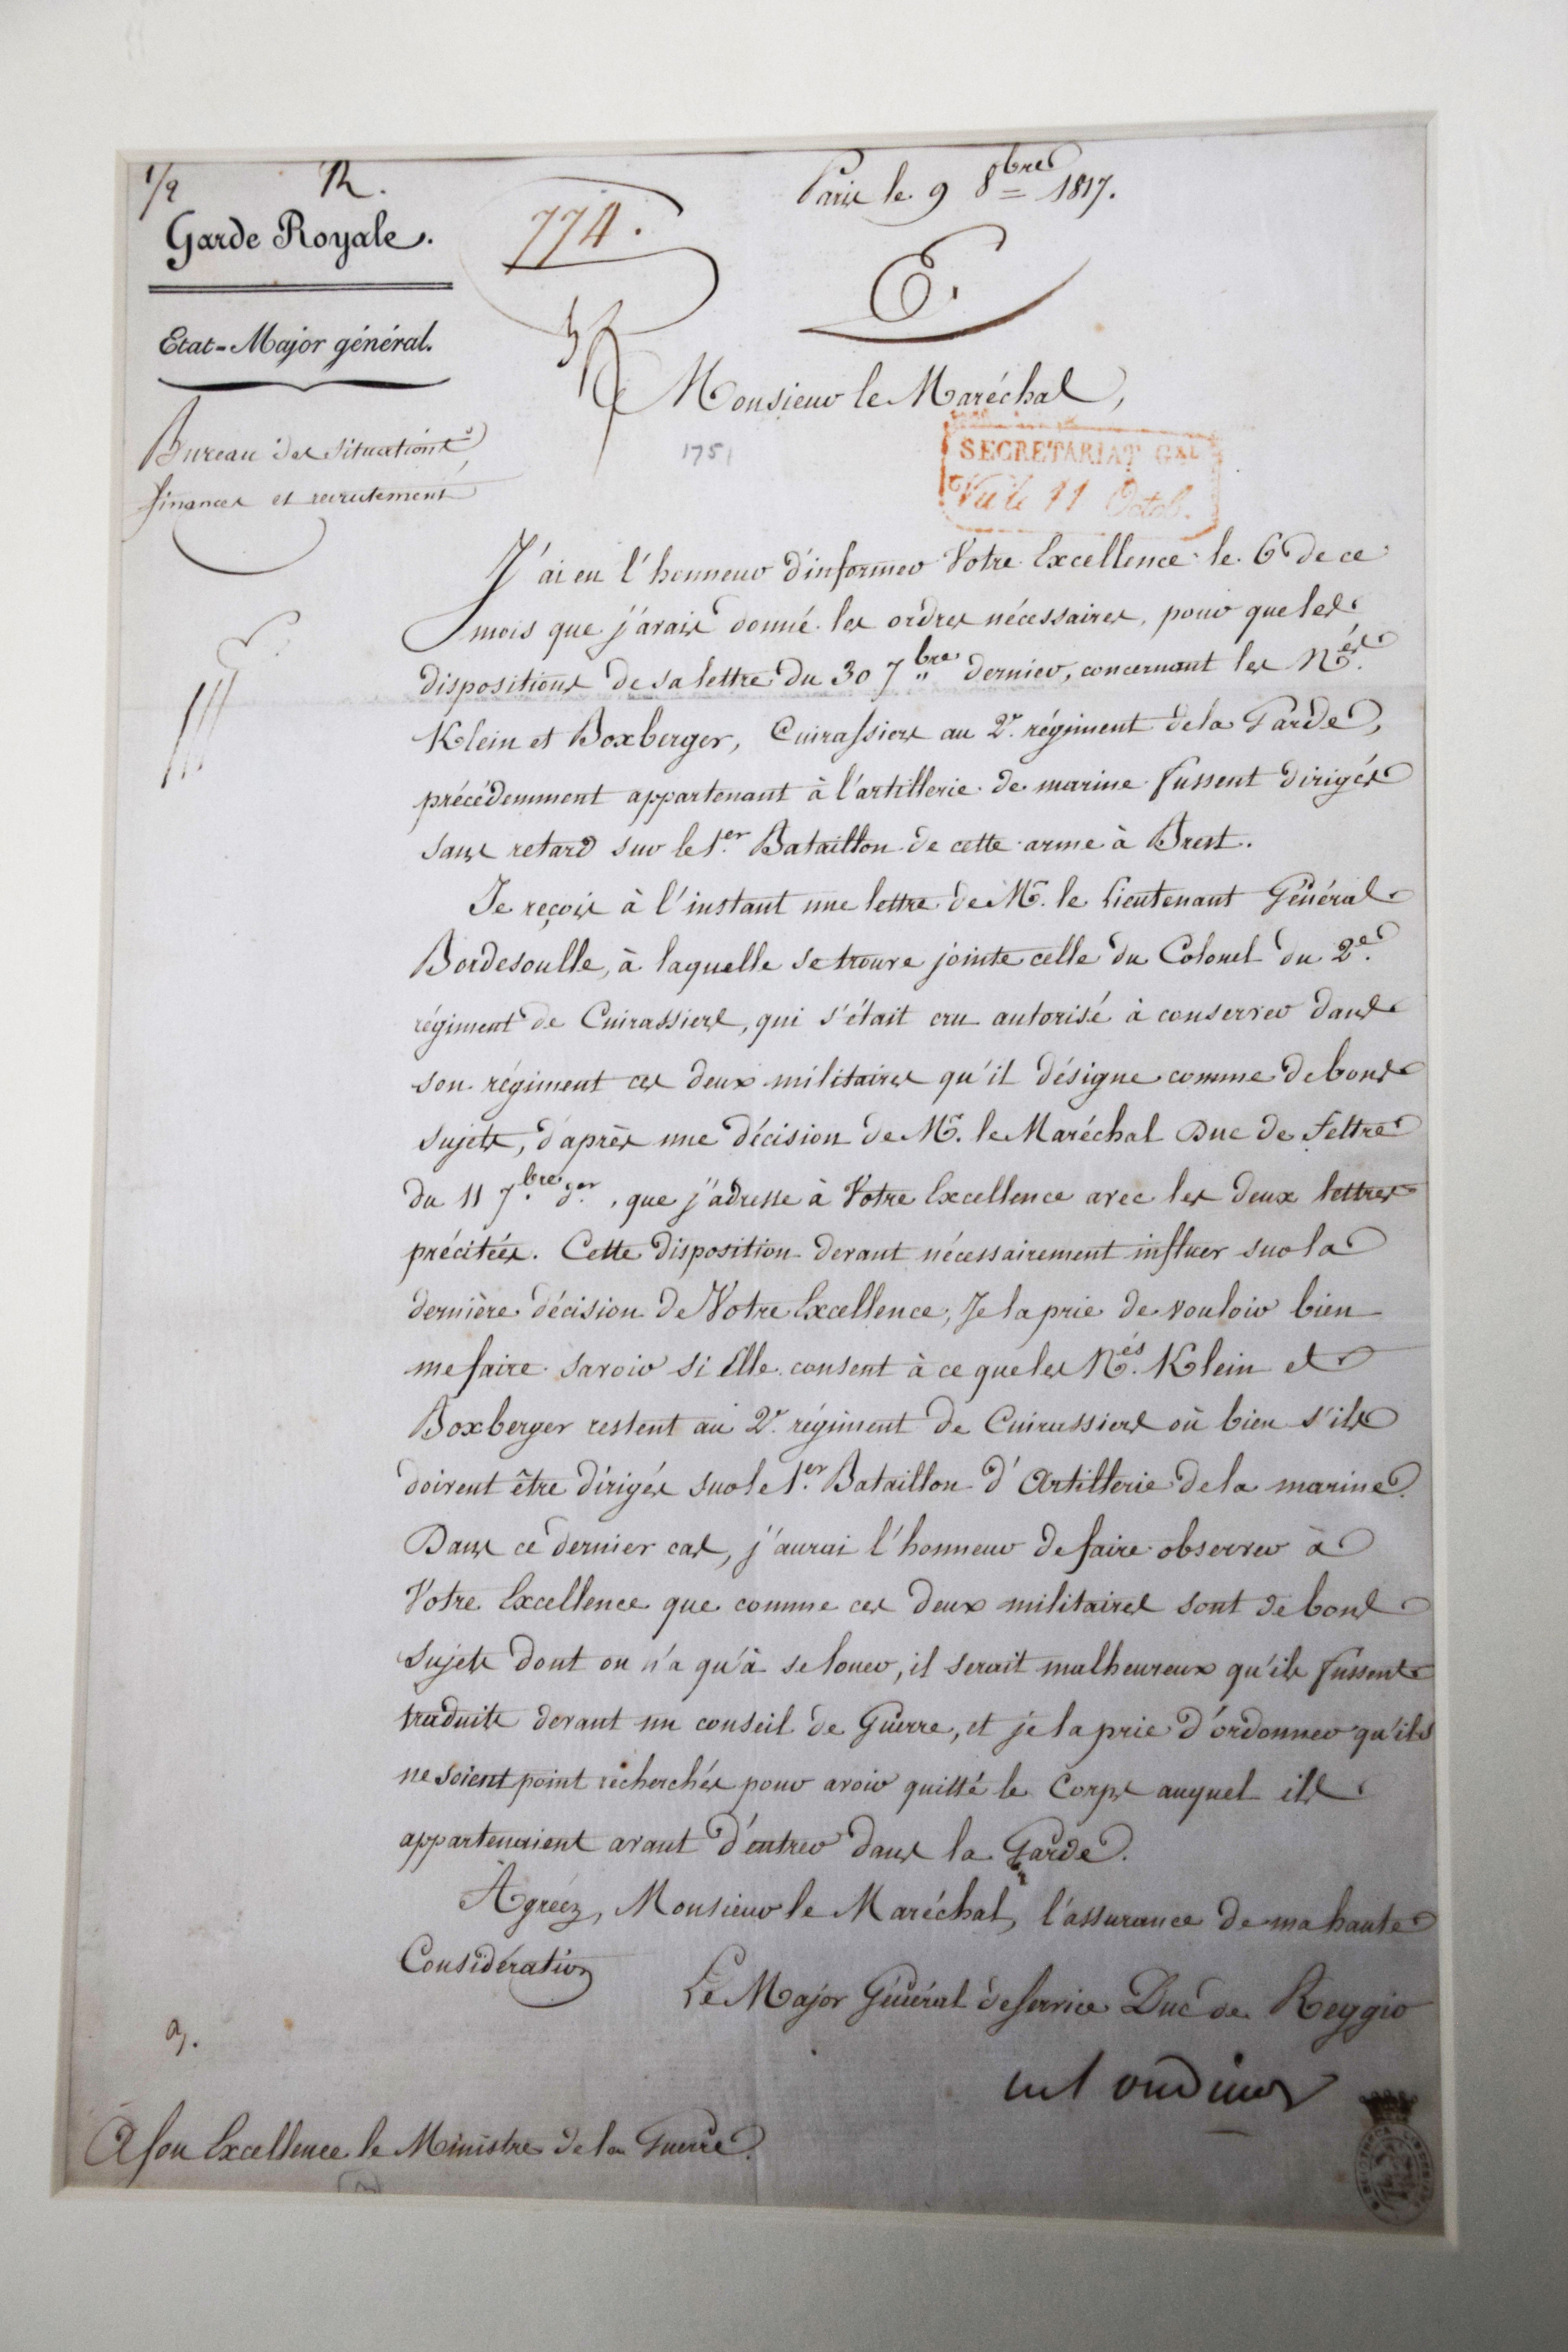 1/2 R.
Garde Royale.
Etat-Major général.
Bureau des situations,
finances et recrutement
774.
Paris le 9 8bre 1817.
E.
Monsieur le Maréchal,
1751
SECRÉTARIAT GAL
Vu le 11 Octob.
J'ai eu l'honneur d'informer Votre Excellence le 6 de ce
mois que j'avais donné les ordres nécessaires, pour que les
dispositions de sa lettre du 30 7bre dernier, concernant les Nés.
Klein et Boxberger, Cuirassiers au 2e. régiment de la Garde,
précédemment appartenant à l'artillerie de marine fussent dirigés
sans retard sur le 1er. Bataillon de cette arme à Brest.
Je reçois à l'instant une lettre de Mr. le Lieutenant Général
Bordesoulle, à laquelle se trouve jointe celle du Colonel du 2e.
régiment de Cuirassiers, qui s'était cru autorisé à conserver dans
son régiment ces deux militaires qu'il désigne comme de bons
sujets, d'après une décision de Mr. le Maréchal Duc de Feltre
du 11 7bre. der., que j'adresse à Votre Excellence avec les deux lettres
précitées. Cette disposition devant nécessairement influer sur la
dernière décision de Votre Excellence, Je la prie de vouloir bien
me faire savoir si Elle consent à ce que les Nés. Klein et
Boxberger restent au 2e. régiment de Cuirassiers où bien s'ils
doivent être dirigés sur le 1er. Bataillon d'Artillerie de la marine.
Dans ce dernier cas, j'aurai l'honneur de faire observer à
Votre Excellence que comme ces deux militaires sont de bons
sujets dont on n'a qu'à se louer, il serait malheureux qu'ils fussent
traduits devant un conseil de Guerre, et je la prie d'ordonner qu'ils
ne soient point recherchés pour avoir quitté le Corps auquel ils
appartenaient avant d'entrer dans la Garde.
Agréez, Monsieur le Maréchal, l'assurance de ma haute
Considération
Le Major Général de service Duc de Reggio
oudinot
A Son Excellence le Ministre de la Guerre.